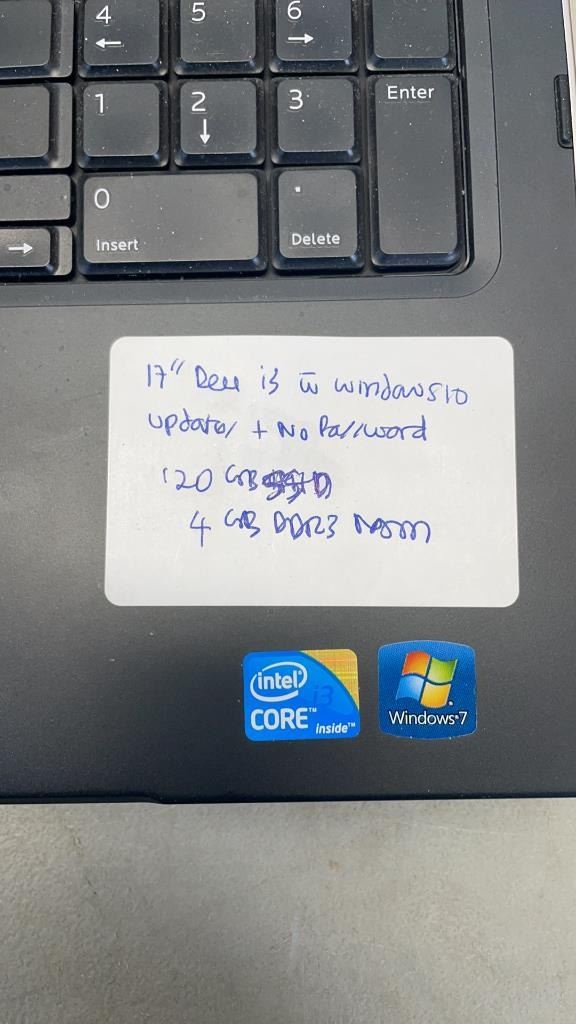 4 5 6
← →
1 2 3 Enter
↓
0 .
Insert Delete
→
17" Dell i3 w̄ windows 10
updates + No Password
120 GB SSD
4 GB DDR3 RAM
intel i3
CORE™
inside™
Windows 7